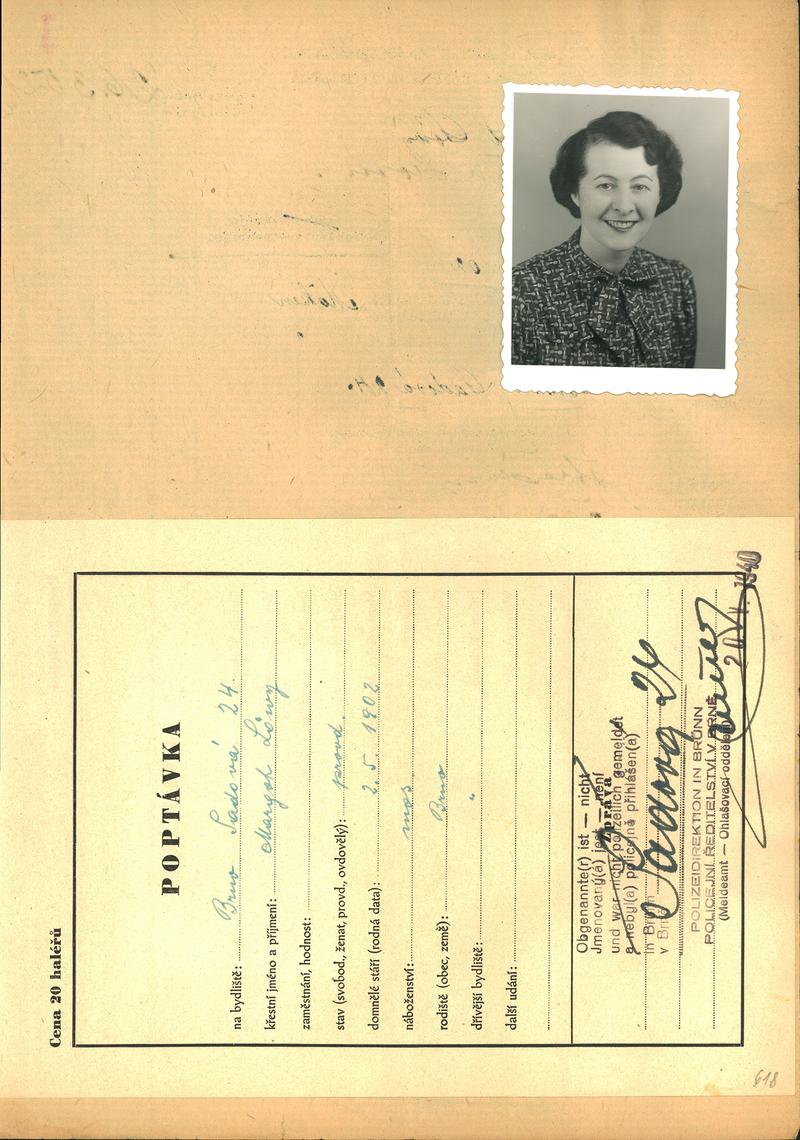 Cena 20 haléřů
POPTÁVKA
na bydliště: Brno Sadová 24.
křestní jméno a příjmení: Margot Löwy
zaměstnání, hodnost:
stav (svobod., ženat, provd., ovdovělý): provd.
domnělé stáří (rodná data): 2. 5. 1902
náboženství: mos
rodiště (obec, země): Brno
dřívější bydliště: "
další udání:
Zpráva
Obgenannte(r) ist — nicht
Jmenovaný(á) jest — není
und war nicht polizeilich gemeldet
a nebyl(a) policejně přihlášen(a)
in Brünn
v Brně
Sadová 24
POLIZEIDIREKTION IN BRÜNN
POLICEJNÍ ŘEDITELSTVÍ V BRNĚ
(Meldeamt — Ohlašovací oddělení)
1940
618